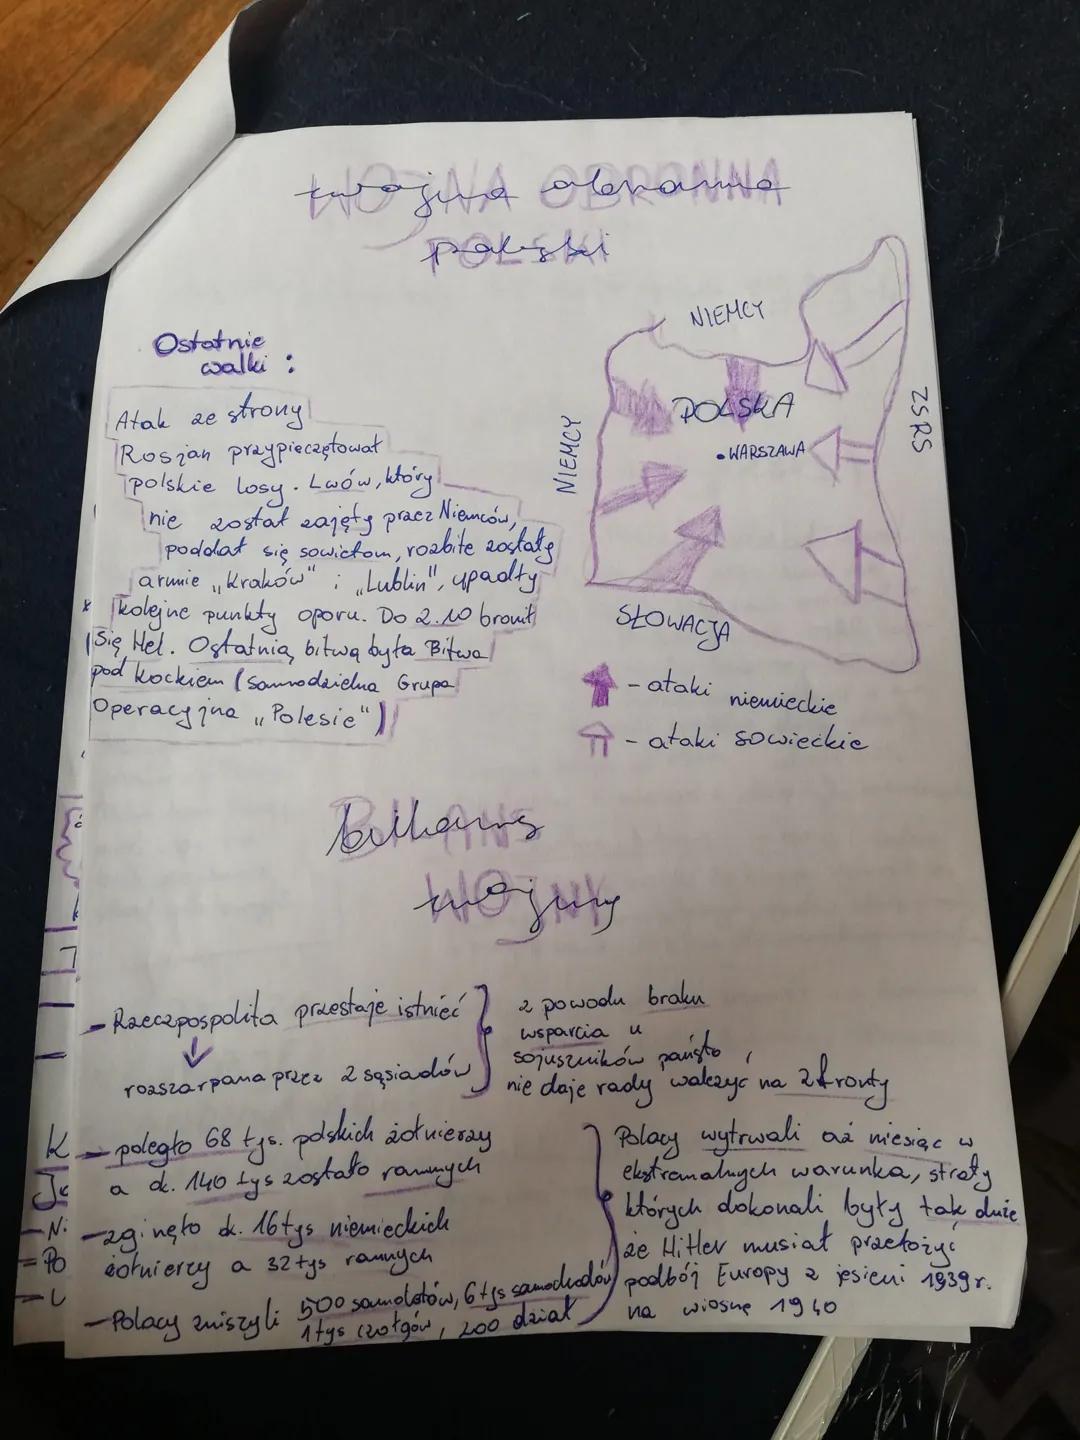 WOJNA OBRONNA
wojna obronna
POLSKI
polski
Ostatnie
walki :
Atak ze strony
Rosjan przypieczętował
polskie losy. Lwów, który
nie został zajęty przez Niemców,
poddał się sowietom, rozbite zostały
armie „Kraków" i „Lublin", upadły
kolejne punkty oporu. Do 2.10 bronił
się Hel. Ostatnią bitwą była Bitwa
pod Kockiem (Samodzielna Grupa
Operacyjna „Polesie")
NIEMCY
NIEMCY
POLSKA
• WARSZAWA
ZSRS
SŁOWACJA
- ataki niemieckie
- ataki sowieckie
BILANS
bilans
WOJNY
wojny
- Rzeczpospolita przestaje istnieć
rozszarpana przez 2 sąsiadów
z powodu braku
wsparcia u
sojuszników państo,
nie daje rady walczyć na 2 fronty
- poległo 68 tys. polskich żołnierzy
a ok. 140 tys zostało rannych
- zginęło ok. 16 tys niemieckich
żołnierzy a 32 tys rannych
- Polacy zniszyli 500 samolotów, 6 tys samochodów
1 tys czołgów, 200 dział
Polacy wytrwali aż miesiąc w
ekstremalnych warunka, straty
których dokonali były tak duże
że Hitler musiał przełożyć
podbój Europy z jesieni 1939r.
na wiosnę 1940
K
Je
- Ni
- Po